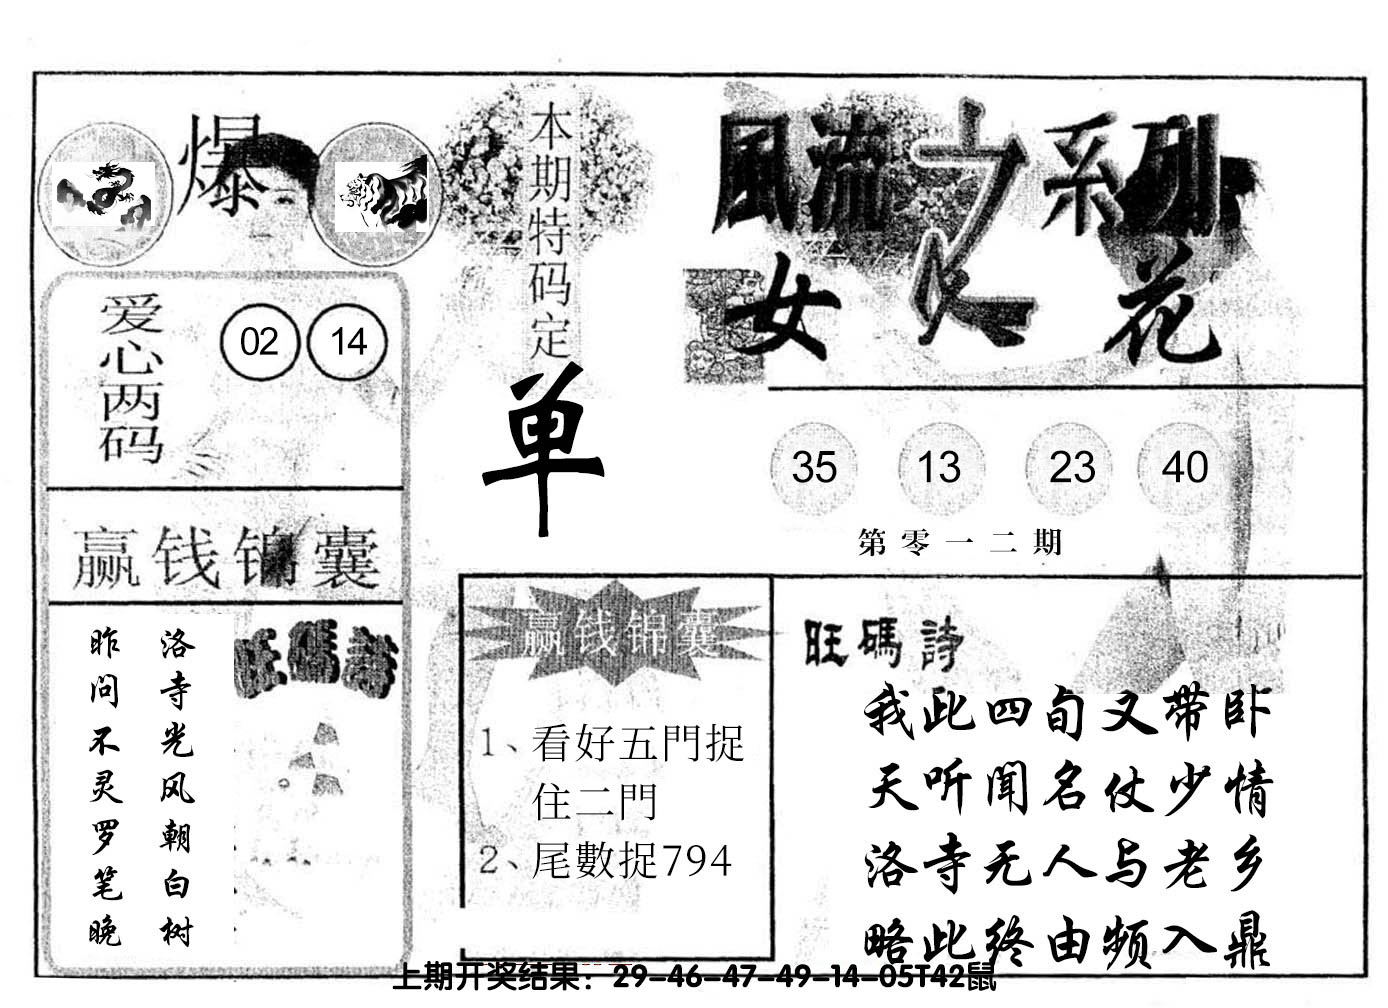 爆
本期特码定
单
風流之系列
女人花
爱心两码
02 14
35 13 23 40
第零一二期
赢钱锦囊
洛寺光风朝白树
昨问不灵罗笔晚
旺碼詩
赢钱锦囊
1、看好五門捉
住二門
2、尾數捉794
旺碼詩
我此四旬又带卧
天听闻名仗少情
洛寺无人与老乡
略此终由频入鼎
上期开奖结果：29-46-47-49-14-05T42鼠